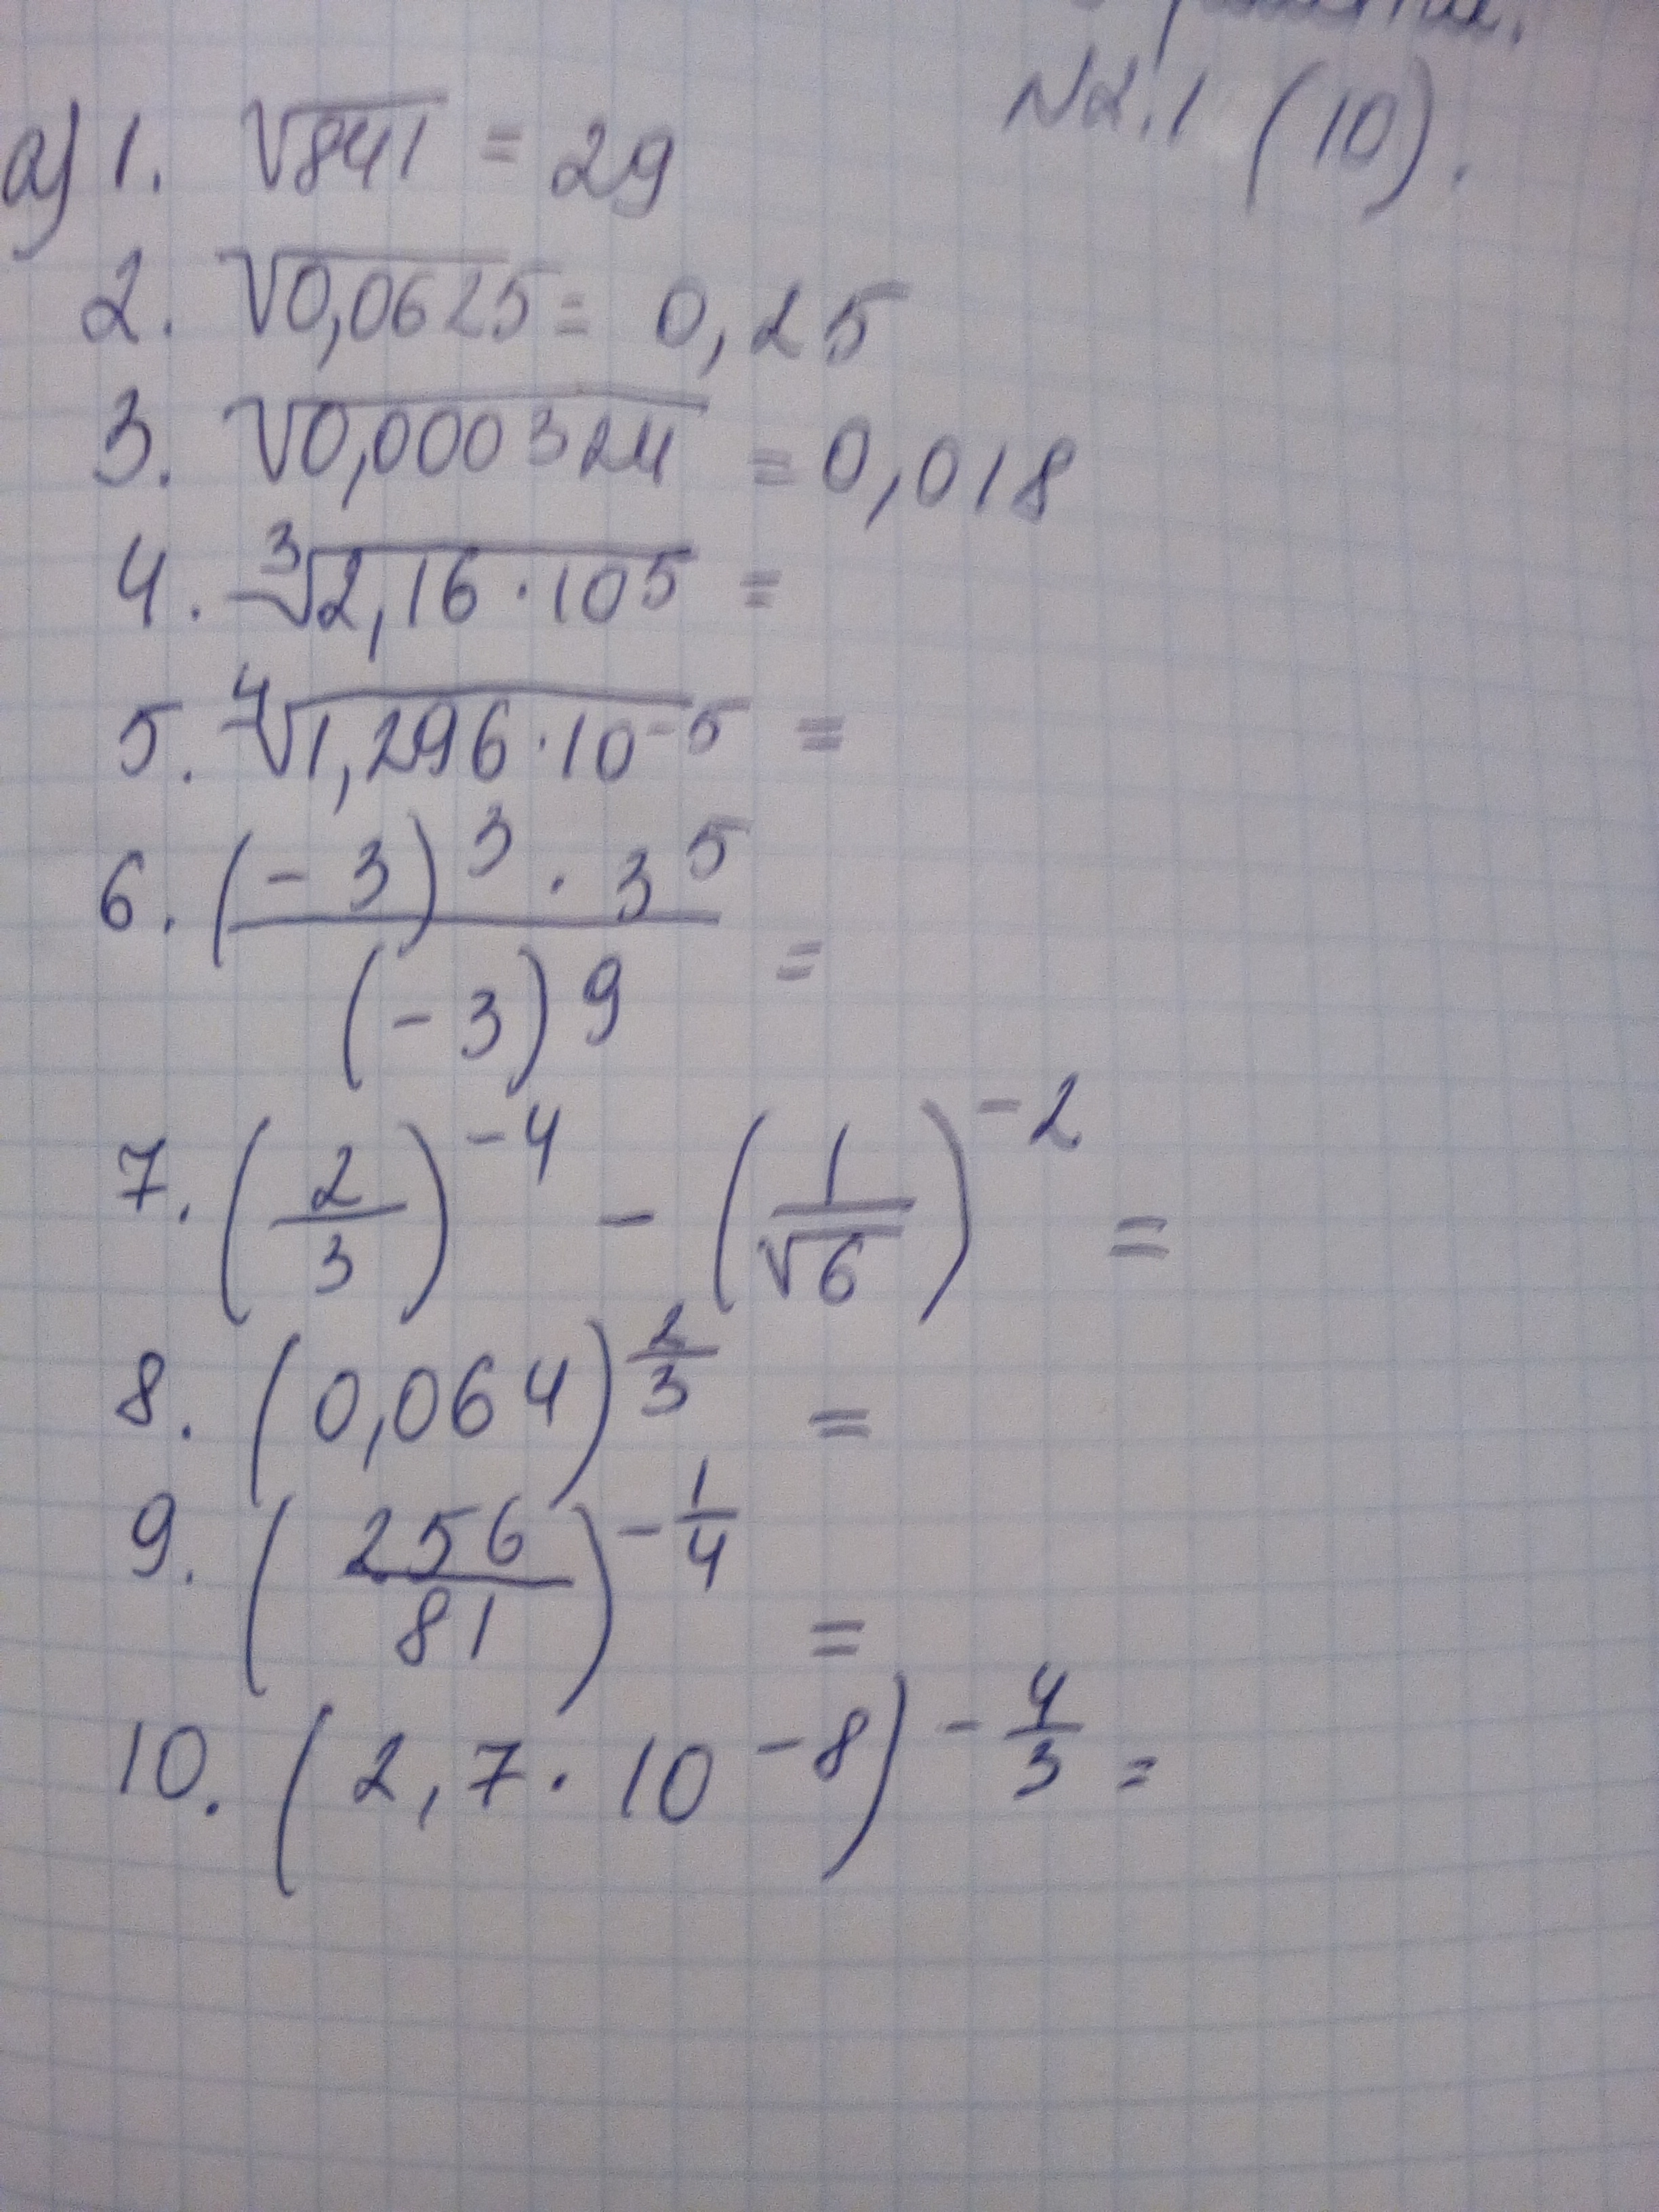 №2.1 (10).
а) 1. √841 = 29
2. √0,0625 = 0,25
3. √0,000324 = 0,018
4. ∛2,16·10⁵ =
5. ∜1,296·10⁻⁵ =
6. (-3)³·3⁵ / (-3)⁹ =
7. (2/3)⁻⁴ - (1/√6)⁻² =
8. (0,064)^(2/3) =
9. (256/81)^(-1/4) =
10. (2,7·10⁻⁸)^(-4/3) =